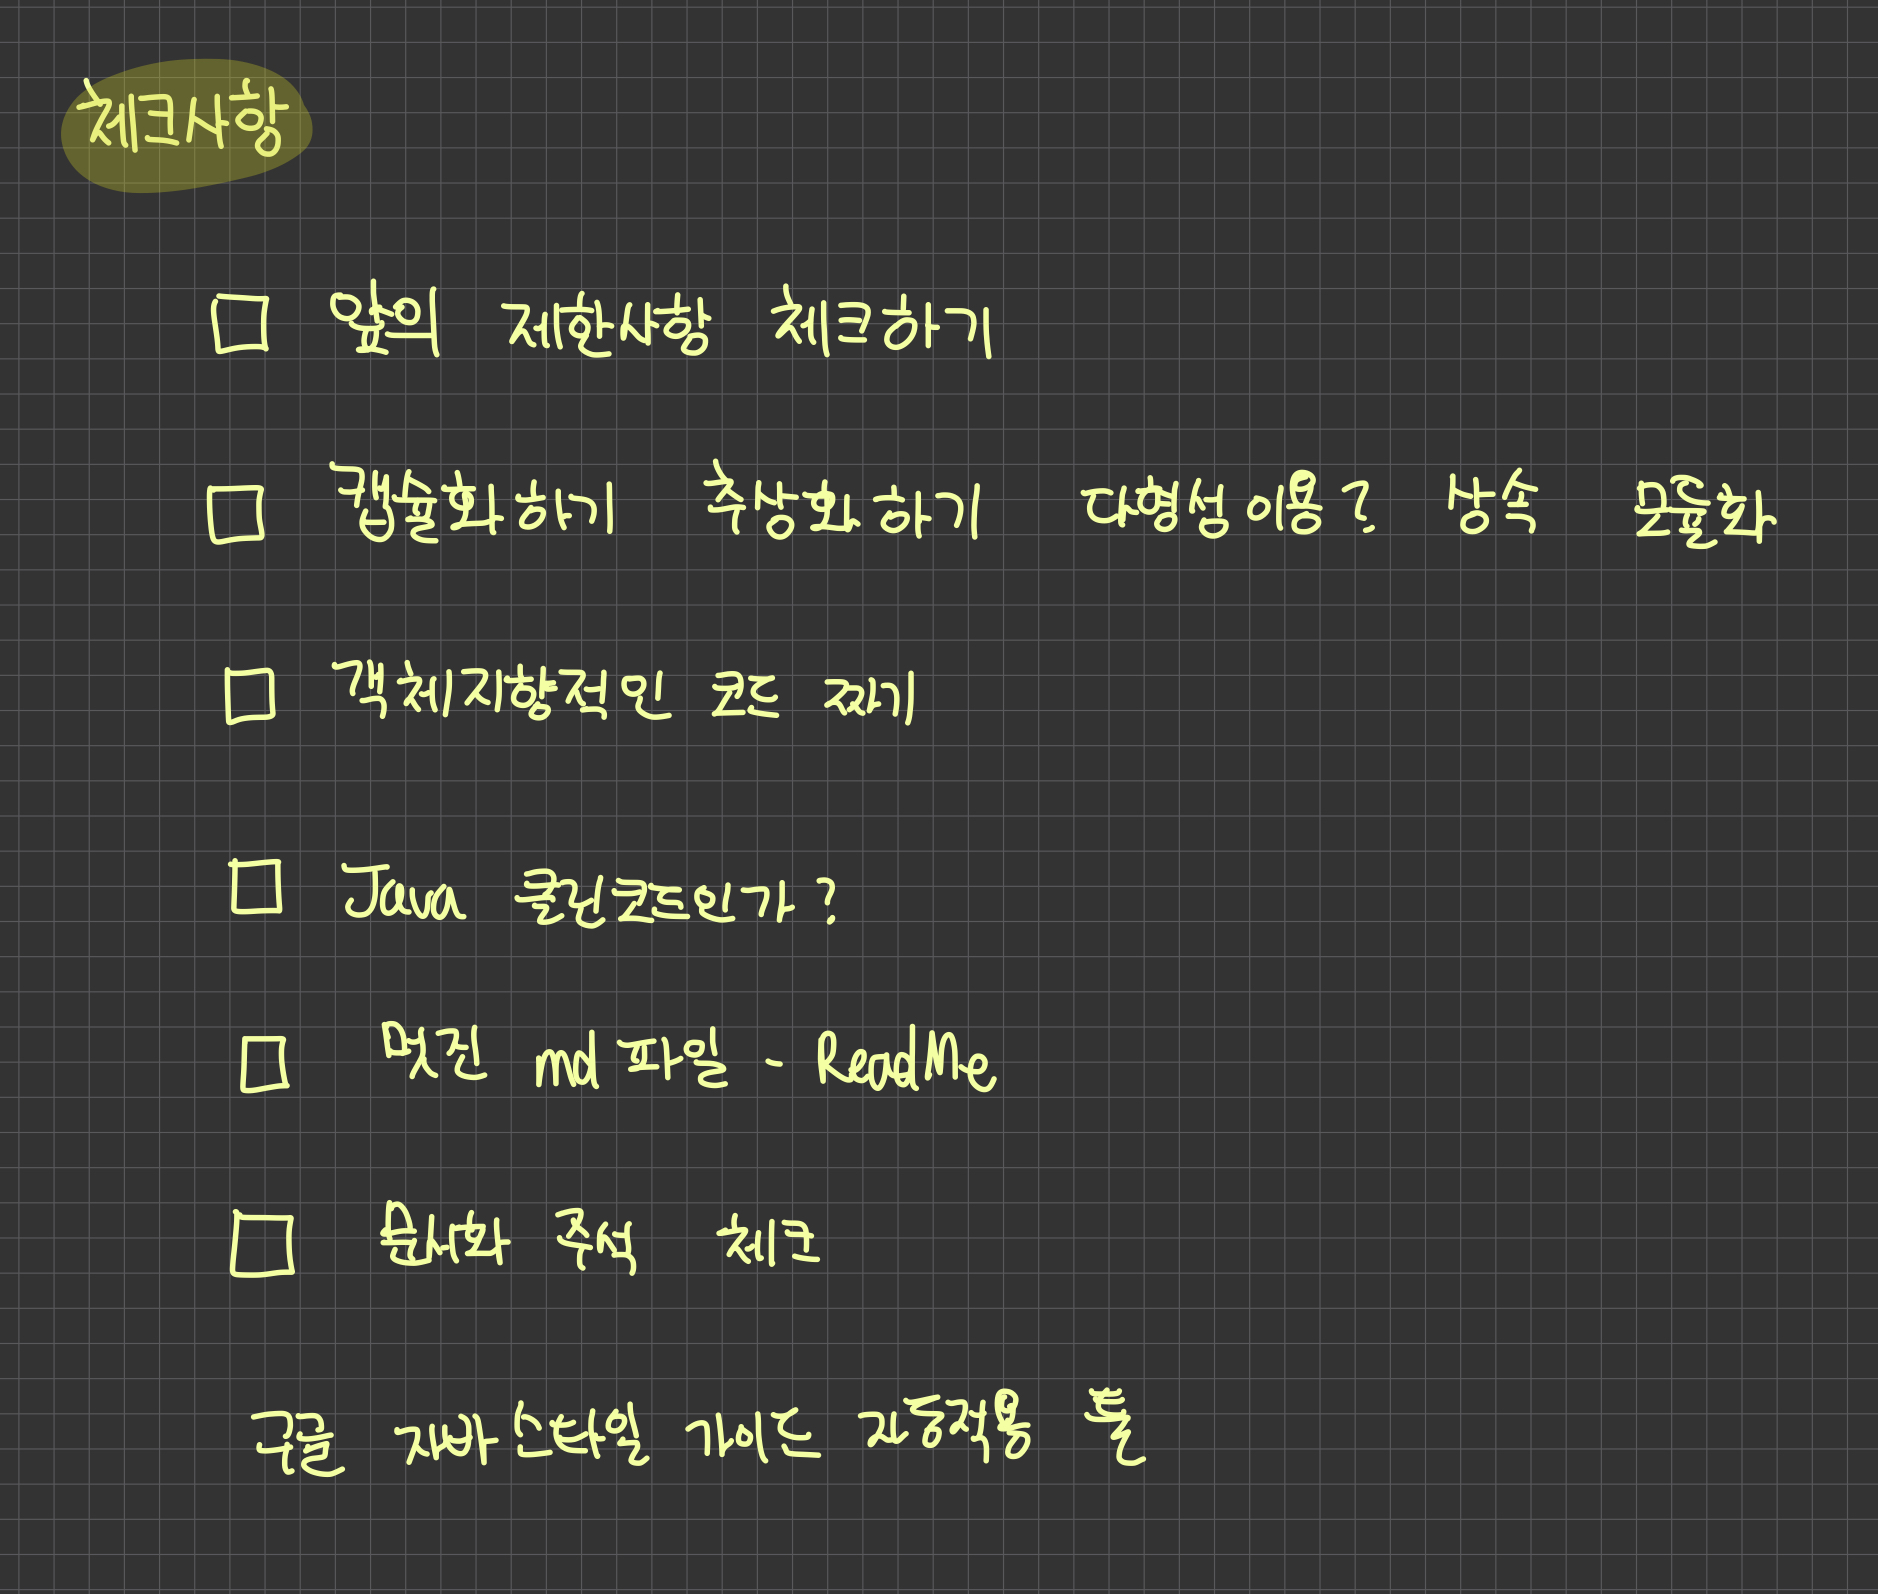 체크사항
앞의 제한사항 체크하기
캡슐화하기 추상화하기 다형성이용? 상속 모듈화
객체지향적인 코드 짜기
Java 클린코드인가?
멋진 md 파일 - ReadMe
문서화 주석 체크
구글 자바스타일 가이드 자동적용 툴